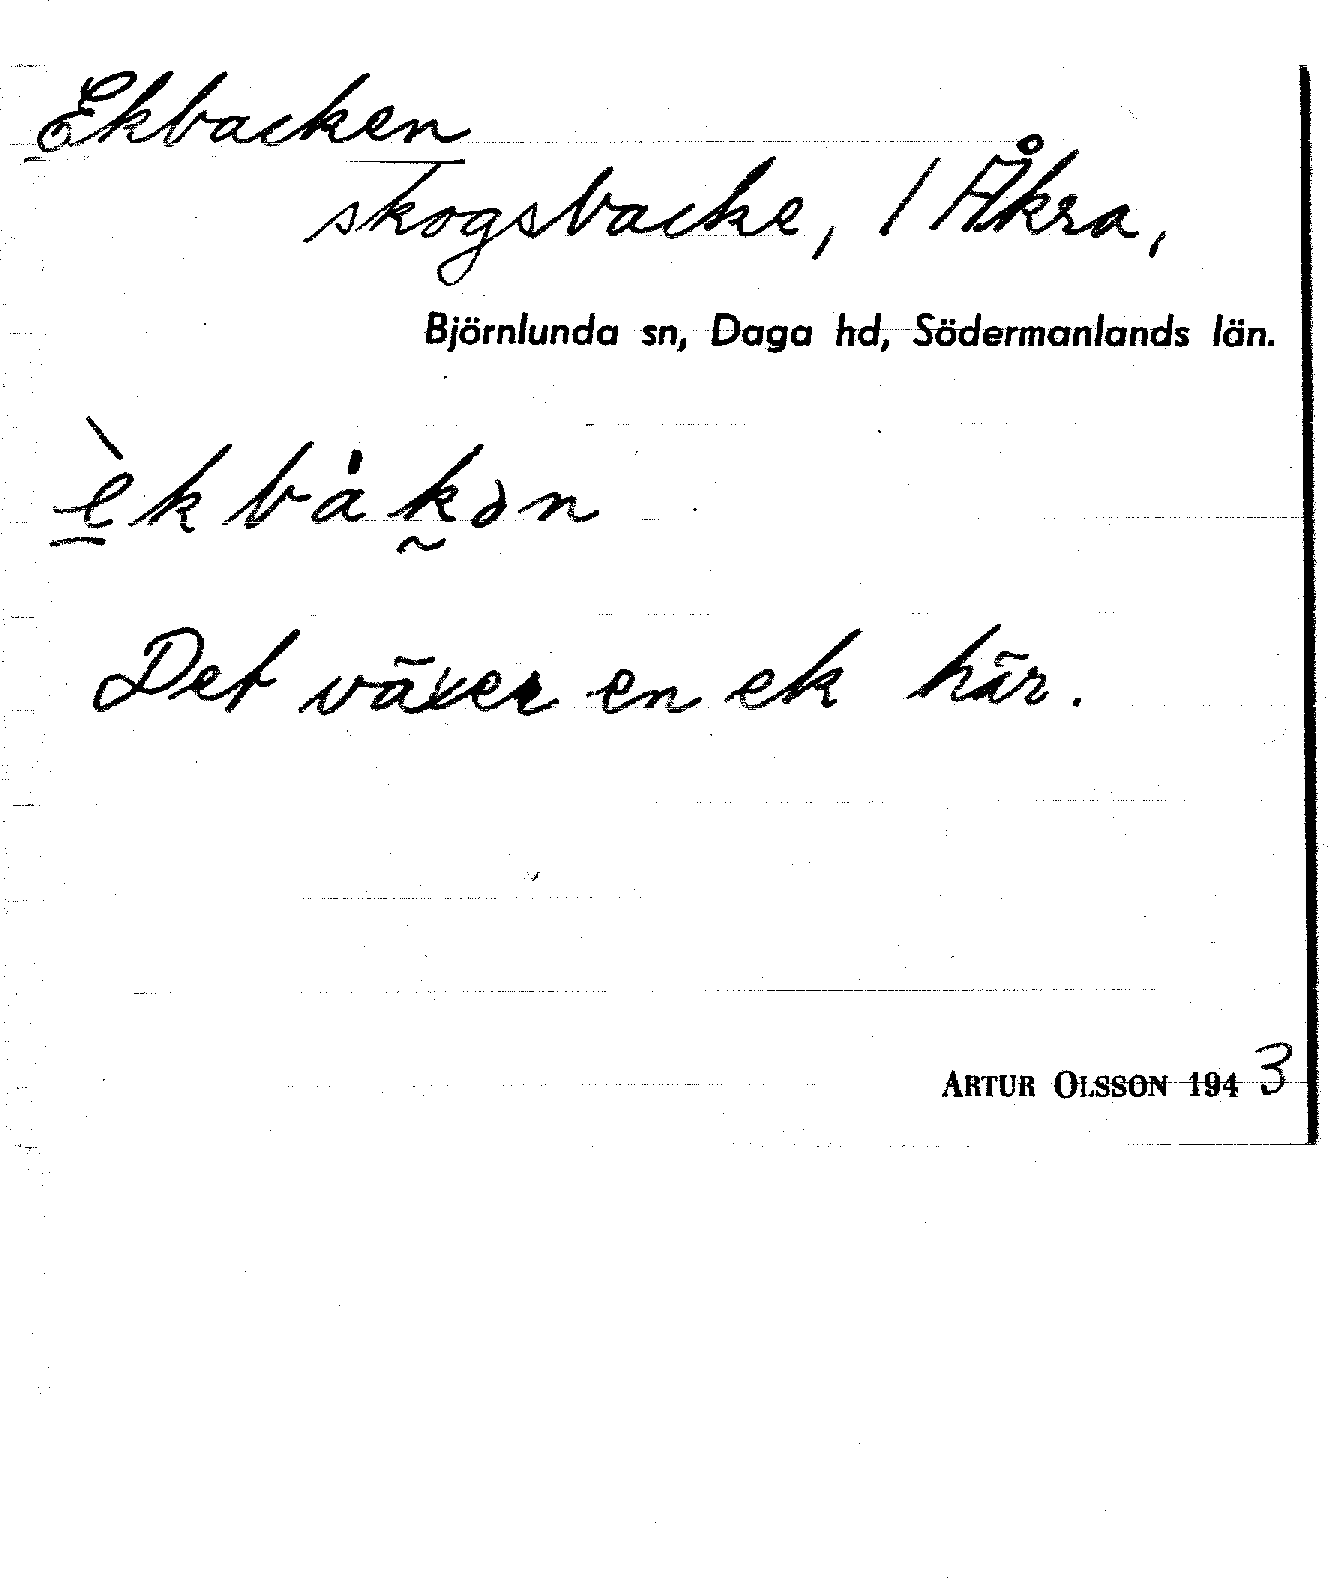 Ekbacken
skogsbacke, / Åkra,
Björnlunda sn, Daga hd, Södermanlands län.
èkbàkən
Det växer en ek här.
ARTUR OLSSON 1943